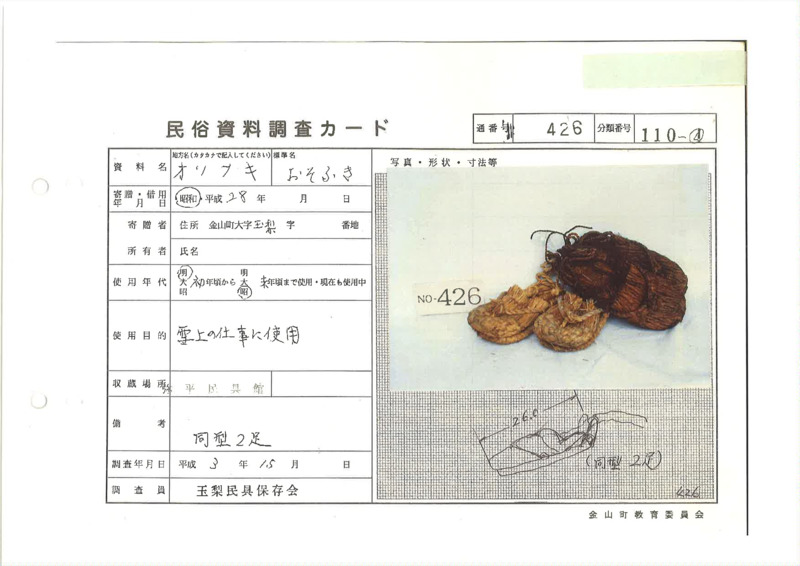 民俗資料調査カード
通番号 426 分類番号 110-④
資料名
地方名(カタカナで記入してください) オソフキ
標準名 おそふき
寄贈・借用年月日 昭和・平成 28年 月 日
寄贈者 住所 金山町大字 玉梨 字 番地
所有者 氏名
使用年代 明大昭 初年頃から 明大昭 末年頃まで使用・現在も使用中
使用目的 雪上の仕事に使用
収蔵場所 平民具館
備考 同型2足
調査年月日 平成 3年 月 日
調査員 玉梨民具保存会
写真・形状・寸法等
NO-426
26.0
(同型 2足)
426
金山町教育委員会